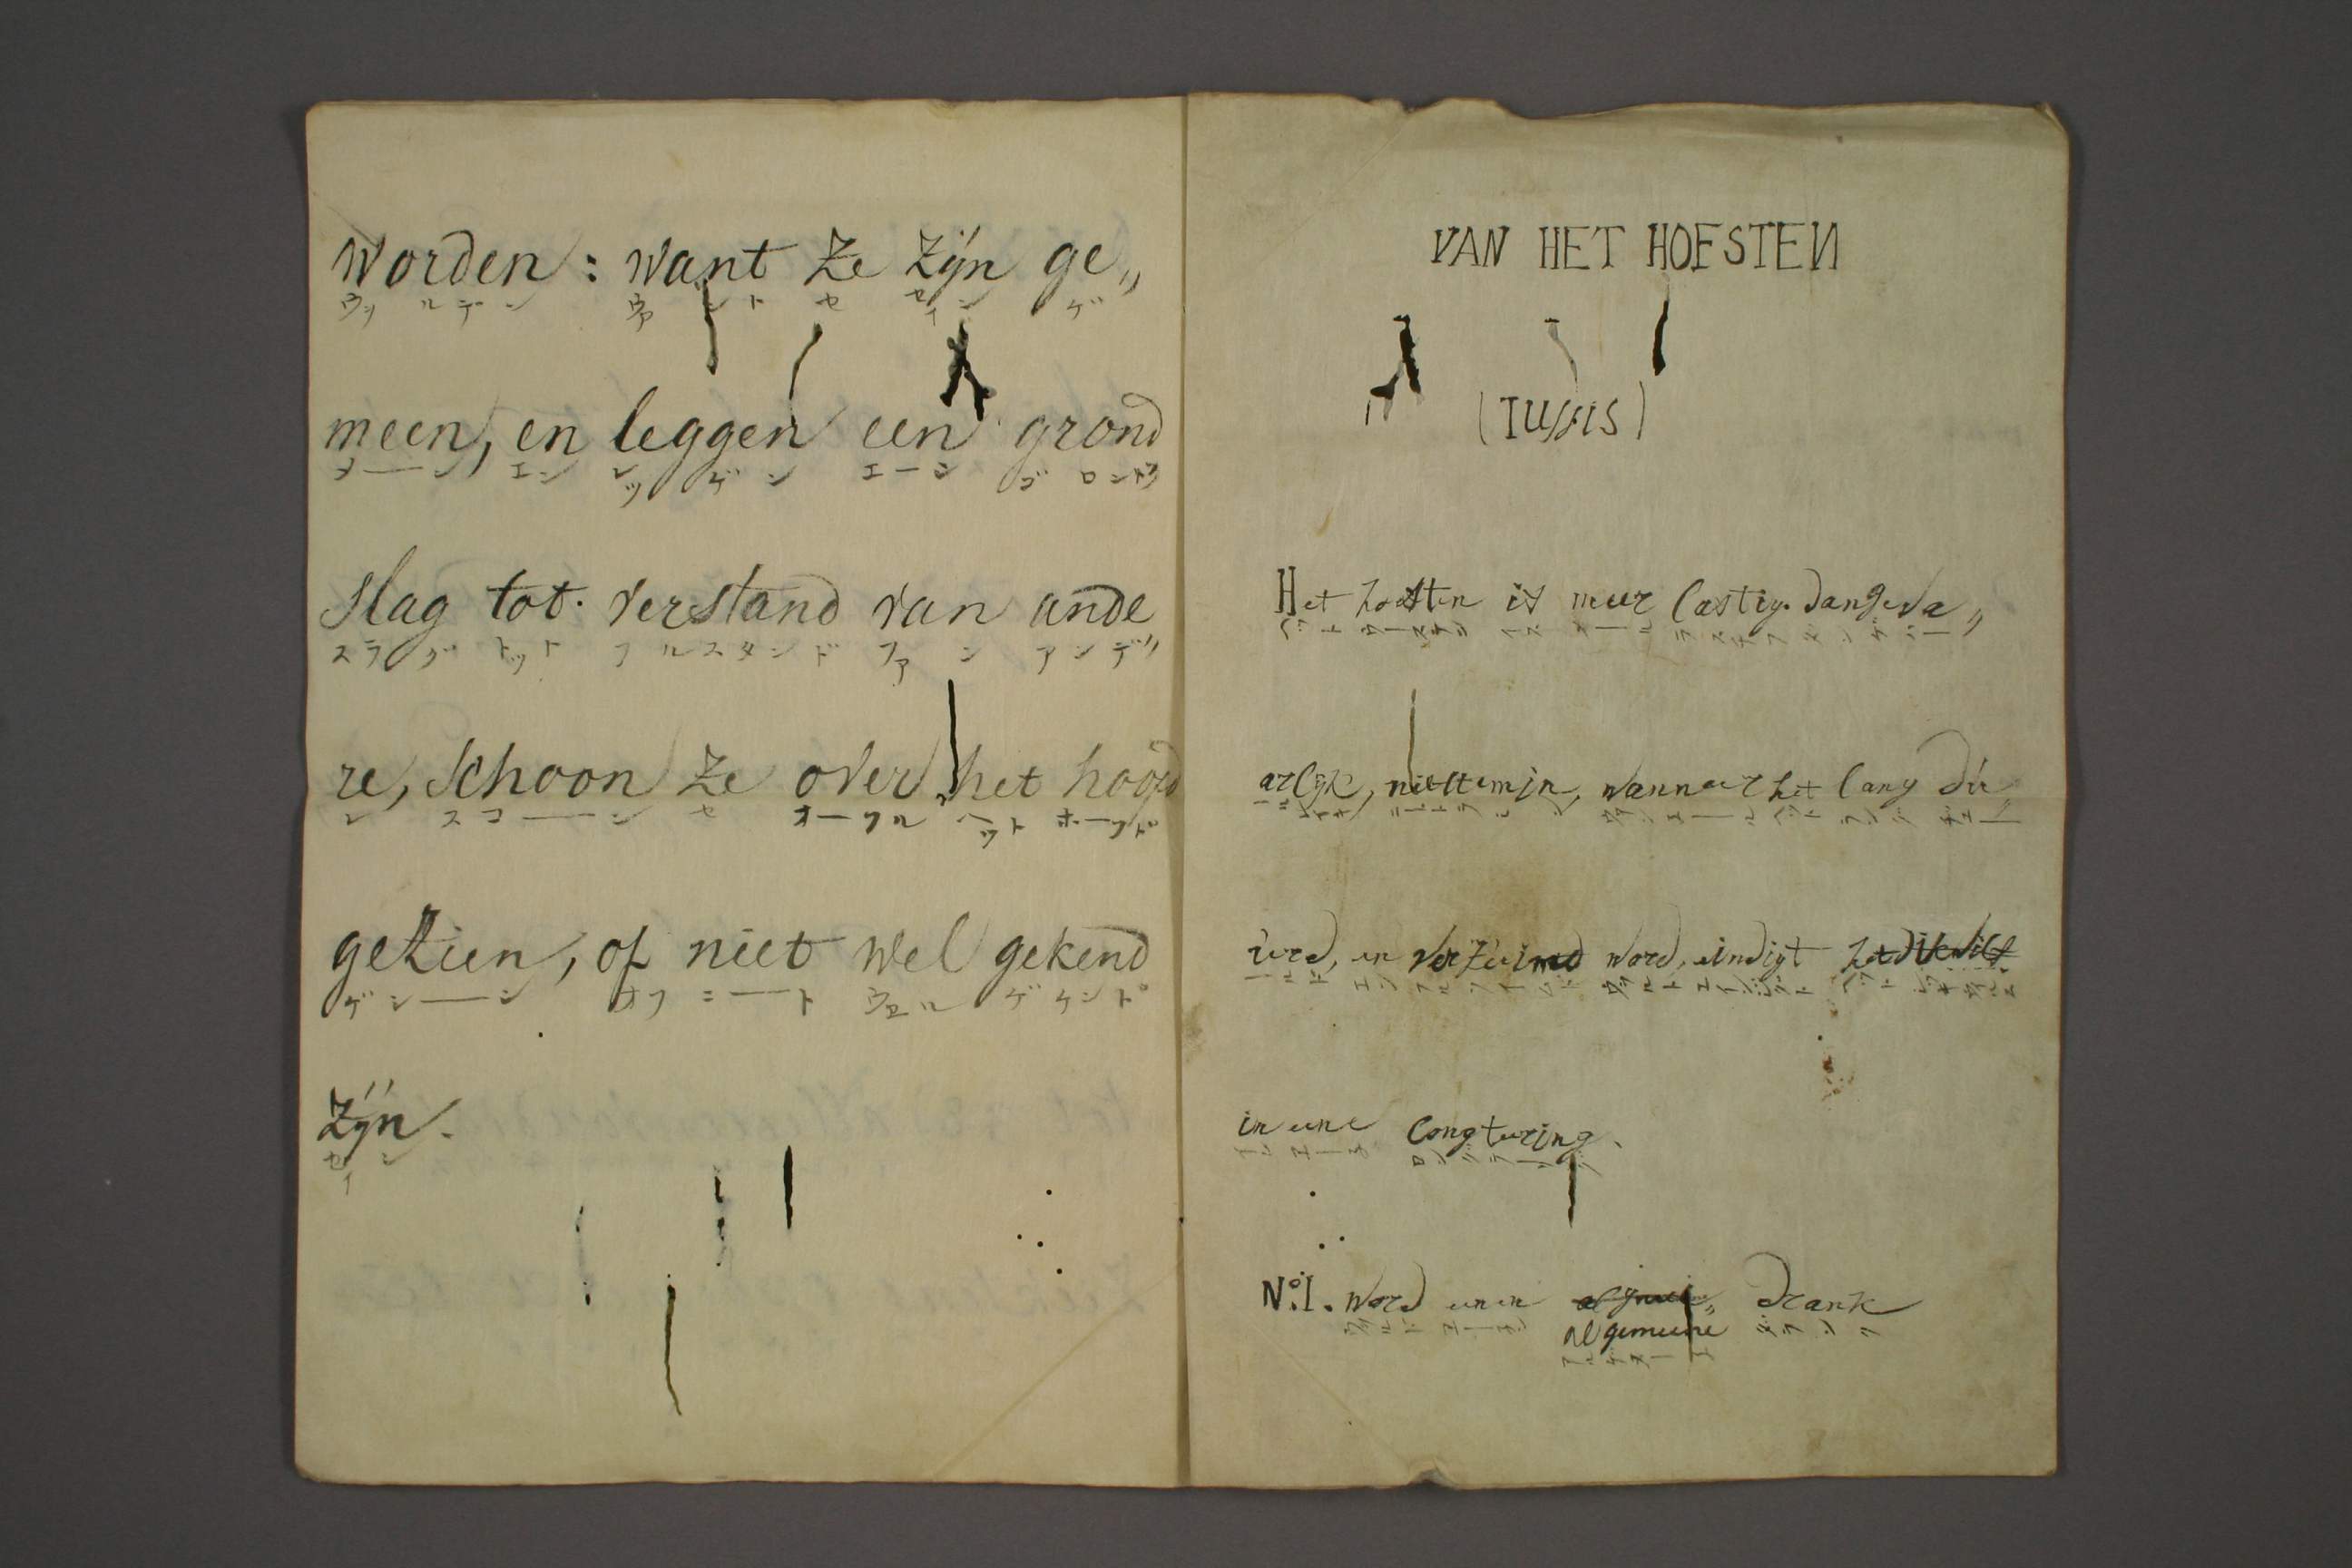 worden: want ze zijn ge„
ウヲルデン ウアント セ セイン ゲ
meen, en leggen een grond
メーン エン レッゲン エーン ゴロンド〃
slag tot verstand van ande
スラグ トット フルスタンド ファン アンデ〃
re, schoon ze over het hoofd
レ スコーン セ オーフル ヘット ホーフド
gezien, of niet wel gekend
ゲシーン オフ ニート ウエル ゲケンド
zijn.
セイン
VAN HET HOESTEN
(TUSSIS)
Het hoesten is meer lastig dangeva„
arlijk, niettemin, wanneer het lang dú
ùrd, en verzúimd word, eindigt het dikwilt
in eene longtering.
イン エーネ ロングテーリング
No1. word eenen algemeen„ drank
algemeene